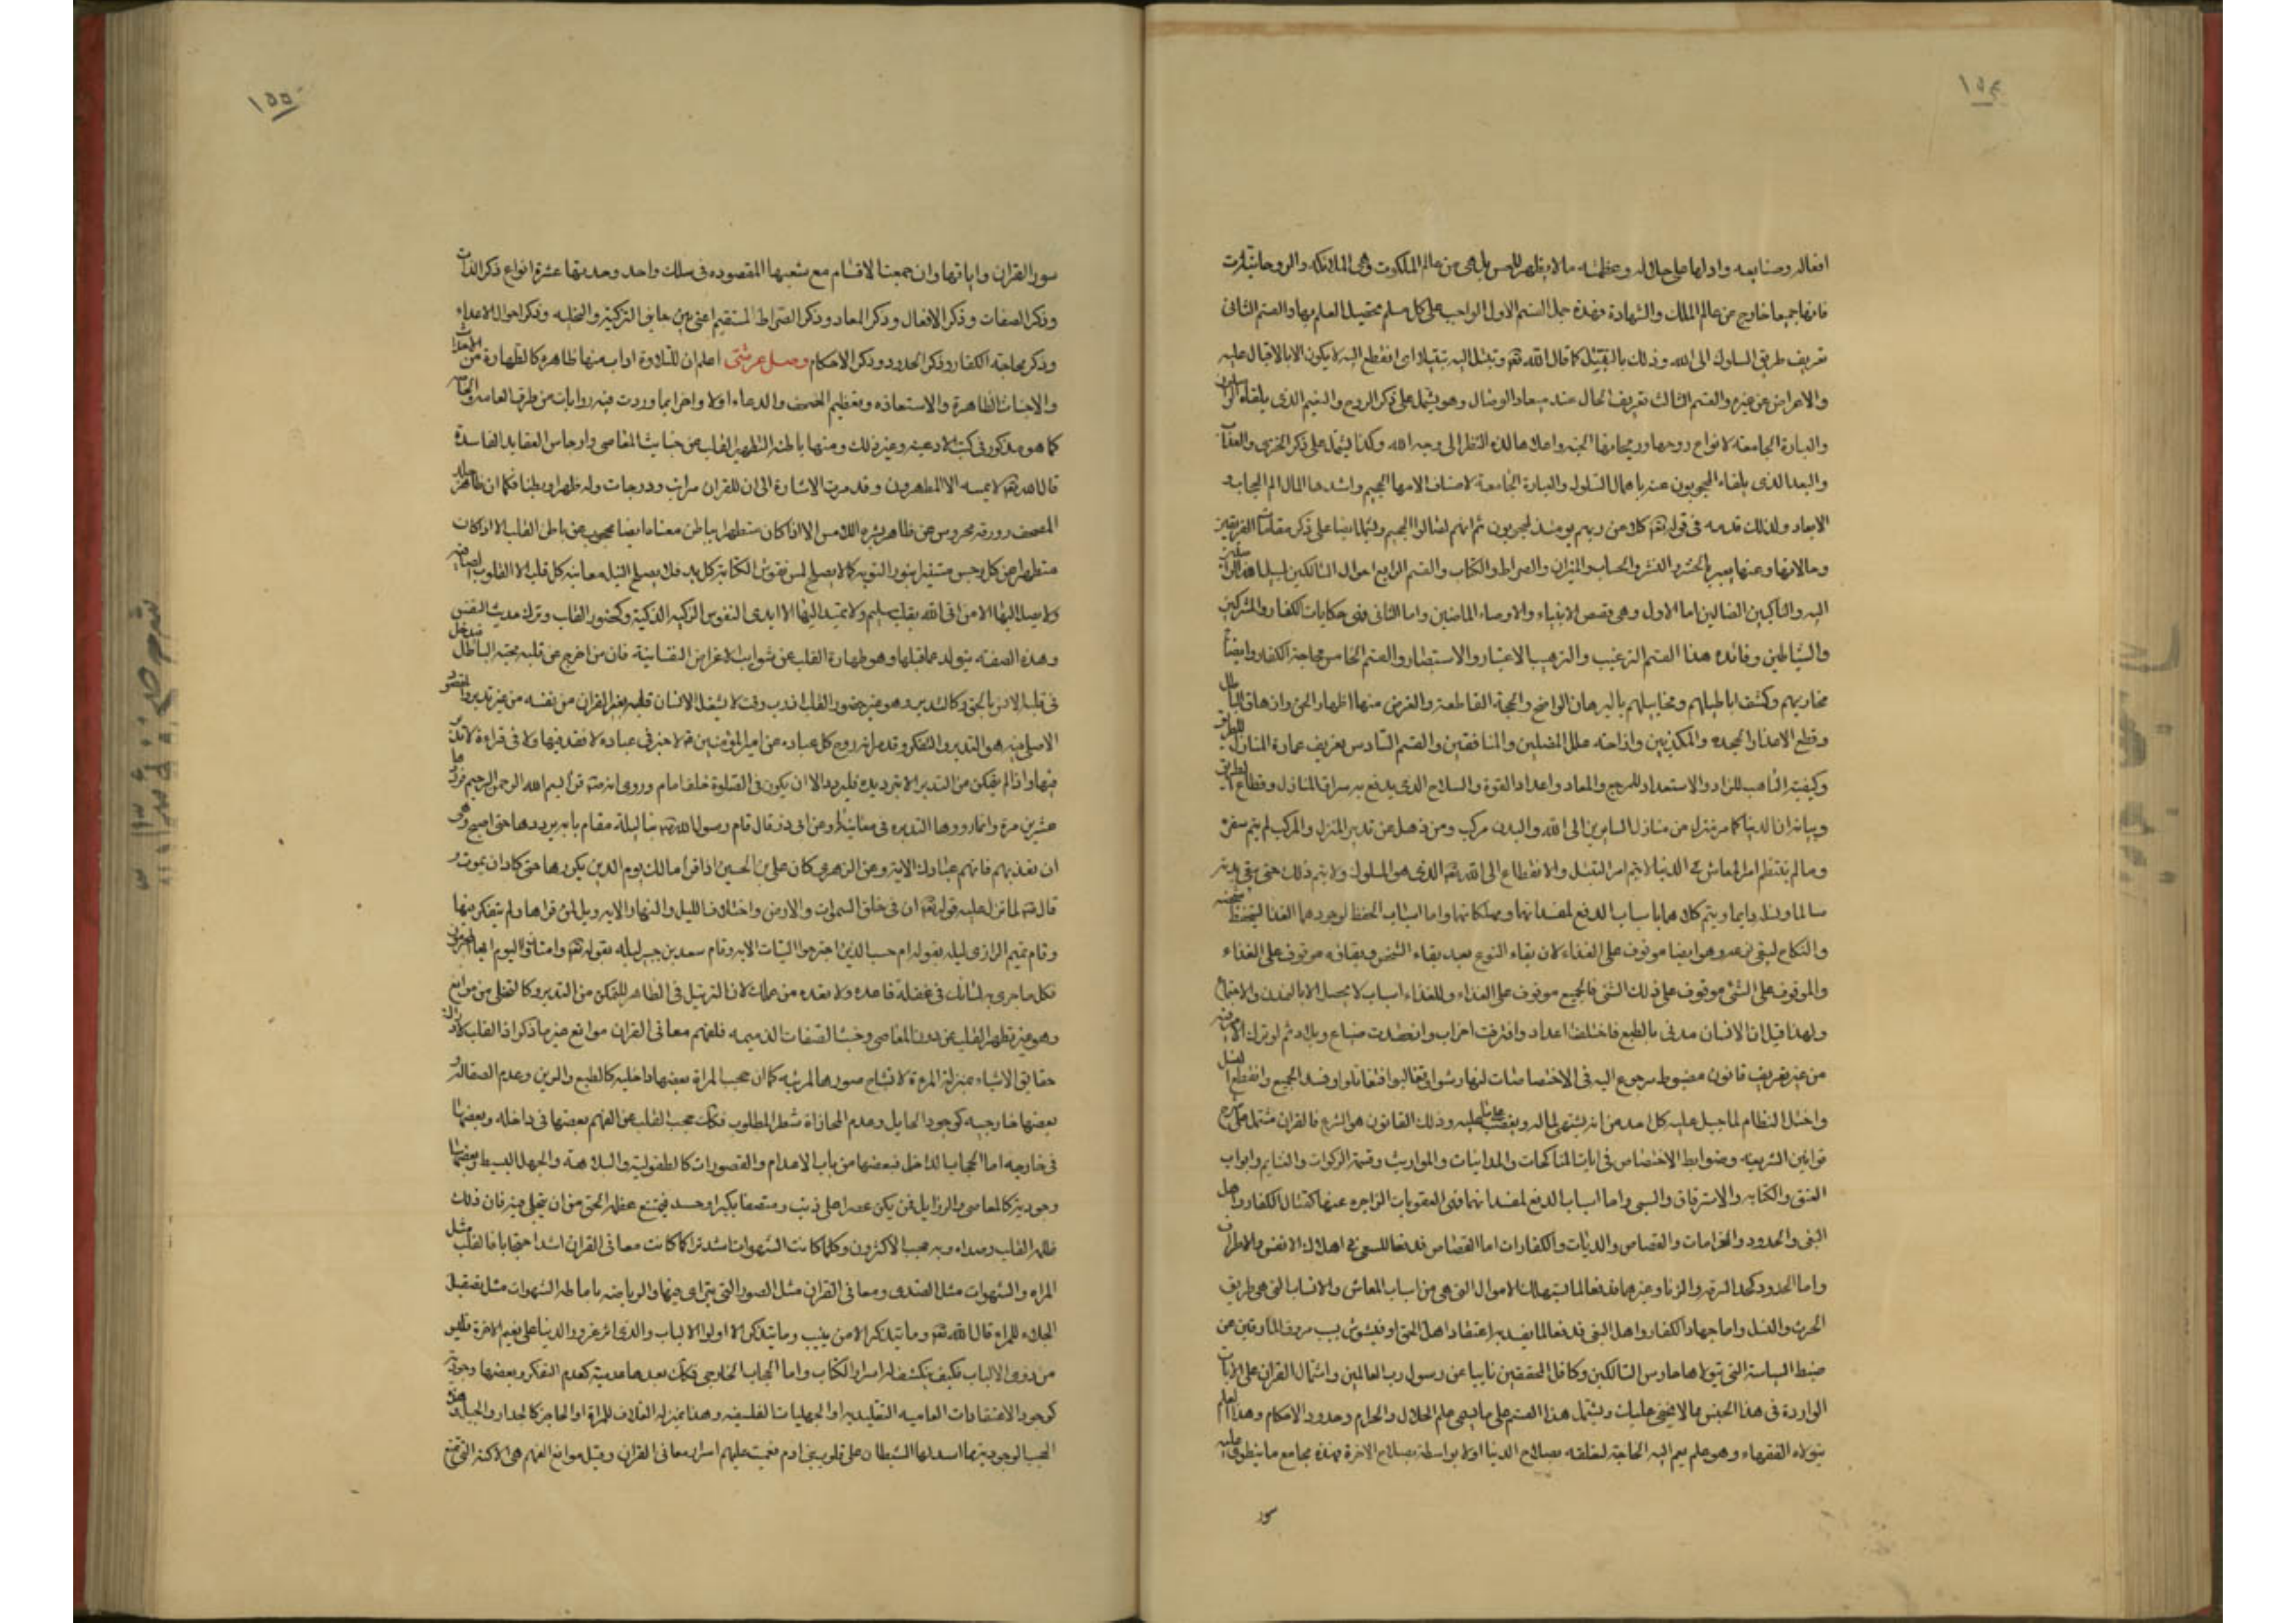 ١٥٤
افعاله وصنايعه وادلها على جلاله وعظمته ما لا يظهر للحس بل هي من عالم الملكوت وهي الملائكة والروحانيات
فانها جميعا خارج من عالم الملك والشهادة فهذه جمل القسم الاول الواجب على كل مسلم تحصيل العلم بها والقسم الثاني
تعريف طريق السلوك الى الله وذلك بالتبتل كما قال الله تعه وتبتل اليه تبتيلا اى انقطع اليه لا يكون الا بالاقبال عليه
والاعراض عن غيره والقسم الثالث تعريف الحال عند ميعاد الوصال وهو يشتمل على ذكر الروح والنعيم الذى يلقاه الواصلون
والعبارة الجامعة لانواع روحها وريحانها الجنة واعلاها لذة النظر الى وجه الله وكذا يشتمل على ذكر الخزى والعذاب
والبعد الذى يلقاه المحجوبون عنه باهمال السلوك والعبارة الجامعة لاصناف الامها الجحيم واشدها الما الم الحجاب و
الابعاد ولذلك قدمه في قوله تعه كلا انهم عن ربهم يومئذ لمحجوبون ثم انهم لصالوا الجحيم ويشتمل ايضا على ذكر مقامات الفريقين
وحالاتها وعنها يعبر بالحشر والنشر والحساب والميزان والصراط والكتاب والقسم الرابع احوال السالكين لسبيل الله الواصلين
اليه والناكبين الضالين اما الاول وهي قصص الانبياء والاوصياء الماضين واما الثاني فهي حكايات الكفار والمشركين
والشياطين وفائده هذا القسم الترغيب والترهيب الاعتبار والاستبصار والقسم الخامس محاجة الكفار وايضاح
مخازيهم وكشف اباطيلهم ومخاييلهم بالبرهان الواضح والحجة القاطعة والغرض منها اظهار الحق وازهاق الباطل
وقطع الاعذار الجحده والمكذبين وازاحته علل المضلين والمنافقين والقسم السادس تعريف عمارة المنازل للطريق
وكيفية التاهب للزاد والاستعداد للمرجع والمعاد واعداد القوة والسلاح الذى يدفع به سراق المنازل وقطاع الطريق
وبيانه ان الدنيا كما مر منزل من منازل السايرين الى الله والبدن مركب ومن ذهل عن تدبير المنزل والمركب لم يتم سفره
وما لم ينتظم امر المعاش في الدنيا لا يتم امر التبتل والانقطاع الى الله تعه الذى هو السلوك ولا يتم ذلك حتى يبقى بدنه
سالما ونسله دايما ويتم كلاهما باسباب الدفع لمفسداتها ومهلكاتها واما اسباب الحفظ لوجودهما الغذا ليتحفظ شخصه
والنكاح ليبقى نوعه وهو ايضا موقوف على الغذاء لان بقاء النوع بعد بقاء الشخص وبقاؤه موقوف على الغذاء
والموقوف على الشئ موقوف على ذلك الشئ فالجميع موقوف على الغذاء وللغذاء اسباب لا يحصل الا بالتمدن والاجتماع
ولهذا قيل ان الانسان مدنى بالطبع فاختلف اعداد وافترقت احزاب وانعقدت ضياع وبلاد ثم لو ترك الامر فيه
من غير تعريف قانون مضبوط مرجوع اليه في الاختصاصات لتهارشوا وتغالبوا فتقاتلوا وفسد الجميع وانقطع النسل
واختل النظام لما جبل عليه كل احد من انه يشتهى لما له ويغضب على ما عليه وذلك القانون هو الشرع فالقران مشتمل على شرح
قوانين الشريعة وضوابط الاختصاص في ايات المناكحات والمداينات والمواريث وقسمة الزكوات والغنايم وابواب
العتق والكتابه والاسترقاق والسبى واما اسباب الدفع لمفسداتهما فهي العقوبات الزاجره عنها كقتال الكفار واهل
البغى والحدود والغرامات والقصاص والديات والكفارات اما القصاص فدفعا للسعى في اهلاك الانفس والاطراف
واما الحدود كحد السرقة والزنا وغيرهما فدفعا لما يستهلك الاموال التى هي من اسباب المعاش والانساب التى هي طريق
الحرث والنسل واما جهاد الكفار واهل البغى فدفعا لما يفسد به اعتقاد اهل الحق او فيشوش بسبب مروق المارقين عن
ضبط السياسة التى يتولاها حارس السالكين وكافل المحققين نايبا عن رسول رب العالمين واشتمال القران على الايات
الواردة في هذا الجنس مما لا يخفى عليك ويشتمل هذا القسم على ما يسمى علم الحلال والحرام وحدود الاحكام وهذا العلم
يتولاه الفقهاء وهو علم يعم اليه الحاجة لتعلقه بصلاح الدنيا اولا بواسطة بصلاح الاخرة فهذه مجامع ما ينطوى عليه
سور
١٥٥
سور القران واياتها وان جمعنا الاقسام مع شعبها المقصوده في سلك واحد وجدتها عشرة انواع ذكر الذات
وذكر الصفات وذكر الافعال وذكر المعاد وذكر الصراط المستقيم اعنى جانبي التزكية والتحلية وذكر احوال الاعداء
وذكر محاجة الكفار وذكر الحدود وذكر الاحكام وصل عرشى اعلم ان للتلاوة اداب منها ظاهره كالطهارة من الاحداث
والاخباث الظاهرة والاستعاذه وتعظيم المصحف والدعاء اولا واخرا بما وردت فيه روايات من طرق العامه والخاصه
كما هو مذكور في كتب الادعية وغير ذلك ومنها باطنه التطهير القلب عن خبايث المعاصى وارجاس العقايد الفاسدة
قال الله تعه لا يمسه الا المطهرون وقد مرت الاشارة الى ان للقران مراتب ودرجات وله ظهرا وبطنا فكما ان ظاهر جلد
المصحف وورقه محروس عن ظاهر بشره اللامس الا اذا كان متطهرا فباطن معناه ايضا محجوب عن باطن القلب الا اذا كان
متطهرا عن كل رجس مستنيرا بنور التوبه كما لا يصلح لمس نقوش الكتابة كل يد فلا يصلح لنيل معانيه كل قلب الا القلوب الصافيه
ولا يصل اليها الا من اتى الله بقلب سليم ولا تمتد اليها الا ايدى النفوس الزكيه الذكية وكحضور القلب وترك حديث النفس
وهذه الصفه يتولد عما قبلها وهو طهارة القلب عن شوايب الاغراض النفسانية فان من اخرج عن قلبه محبة الباطل فيدخل
في قلبه الانس بالحق وكالتدبر وهو غير حضور القلب اذ رب وقت لا يشغل الانسان قلبه بغير القران من نفسه من غير تدبر والمقصود
الاصلى منه هو التدبر والتفكر وقد مر انه روح كل عباده عن امير المؤمنين ع لا خير في عباده لا فقه فيها ولا في قراءة لا تدبر
فيها واذا لم يتمكن من التدبر الا بترديده فليردد الا ان يكون في الصلوة خلف امام وروى انه ص قرأ بسم الله الرحمن الرحيم فرددها
عشرين مرة وانما رددها لتدبره في معانيها وعن ابى ذر قال قام رسول الله ص بنا ليلة فقام باية يرددها حتى اصبح وهى
ان تعذبهم فانهم عبادك الاية وعن الزهرى كان على بن الحسين اذا قرأ مالك يوم الدين يكررها حتى كاد ان يموت و
قال ص لما نزل عليه قوله تعه ان في خلق السموات والارض واختلاف الليل والنهار الايه ويل لمن قراها ولم يتفكر فيها
وقام تميم الرازى ليله بقوله ام حسب الذين اجترحوا السيئات الايه وقام سعيد بن جبير ليله بقوله تعه وامتازوا اليوم ايها المجرمون
فكل ما جرى به لسانك في غفلة فاعده ولا تعده من عملك لان الترتيل في الظاهر للتمكن من التدبر وكالتخلى من موانع
وهو غير تطهير القلب عن درن المعاصى وخبث الصفات الذميمه فلفهم معانى القران موانع غير ما ذكر اذ القلب لادراك
حقايق الاشياء بمنزلة المرءة لانشباح صورها المرئيه كما ان حجب المراة بعضها داخليه كالطبع والرين وعدم الصقالة و
بعضها خارجيه كوجود الحايل وعدم المحاذاة شطر المطلوب فكذلك حجب القلب عن الفهم بعضها في داخله وبعضها
في خارجه اما الحجاب الداخل فبعضها من باب الاعدام والقصورات كالطفولية والبلاهة والجهل البسيط وبعضها
وجودية كالمعاصى والرذايل فمن يكن مصرا على ذنب ومتصفا بكبر او حسد فيمتنع عظة الحق من ان يتجلى فيه فان ذلك
ظلمه القلب وصداه وبه حجب الاكثرون وكلما كانت الشهوات اشد تراكما كانت معانى القران اشد احتجابا فالقلب مثل
المراه والشهوات مثل الصدى ومعانى القران مثل الصور التى تتراى فيها والرياضه باماطه الشهوات مثل تصقيل
الجلاء للمراه قال الله تعه وما يتذكر الا من ينيب وما يتذكر الا اولوا الالباب والذى اثر غرور الدنيا على نعيم الاخرة فليس
من ذوى الالباب فكيف ينكشف له اسرار الكتاب واما الحجاب الخارجى فكذلك بعدها عدمية كعدم التفكر وبعضها وجودية
كوجود الاعتقادات العاميه التقليديه او الجهليات الفلسفيه وهذا بمنزله الغلاف للمراة او الحاجز كالجدار والجبل وهذه
الحجب الوجودية مما اسدلها الشيطان على قلوب بنى ادم فعميت عليهم اسرار معانى القران وقيل موانع الفهم هي الاكنة التى تمنع